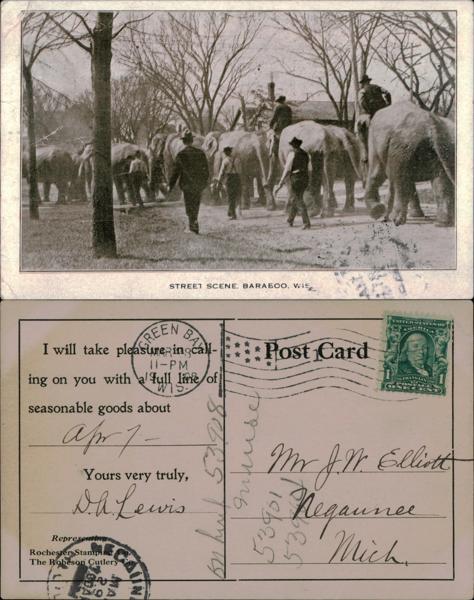 STREET SCENE, BARABOO, WIS.
GREEN BAY
MAR
11-PM
WIS.
I will take pleasure in call-
ing on you with a full line of
seasonable goods about
Apr 7 -
Yours very truly,
D. A. Lewis
Representing
Rochester Stamping Co.
The Robeson Cutlery Co.
Post Card
1 1
Mr J. W. Elliott
Negaunee
Mich.
53928
53901